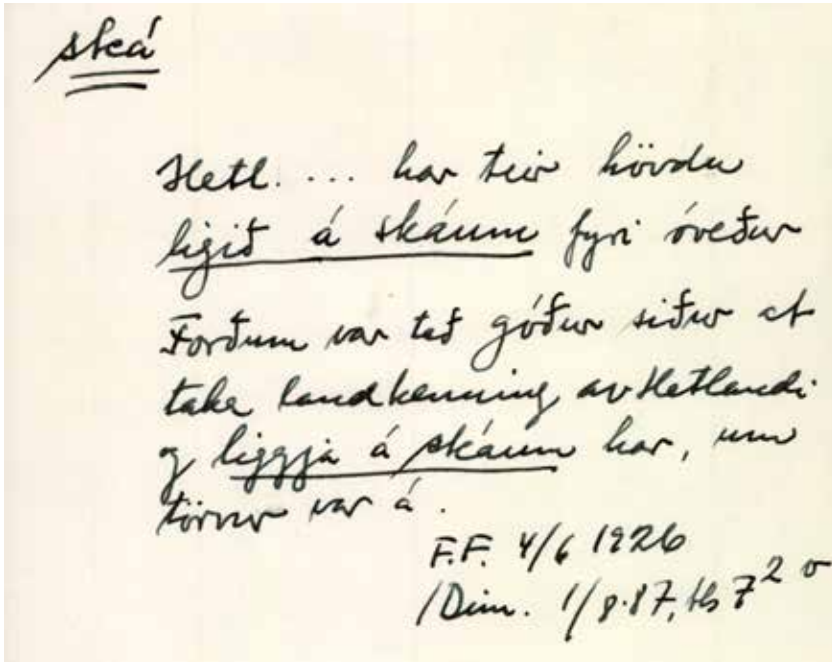 ská
Hetl. ... har teir hövdu
ligið á skáum fyri óveður
Forðum var tað góður siður at
taka landkenning av Hetlandi
og liggja á skáum har, um
törvur var á.
F.F. 4/6 1926
/Dim. 1/8.87, bls 7 2